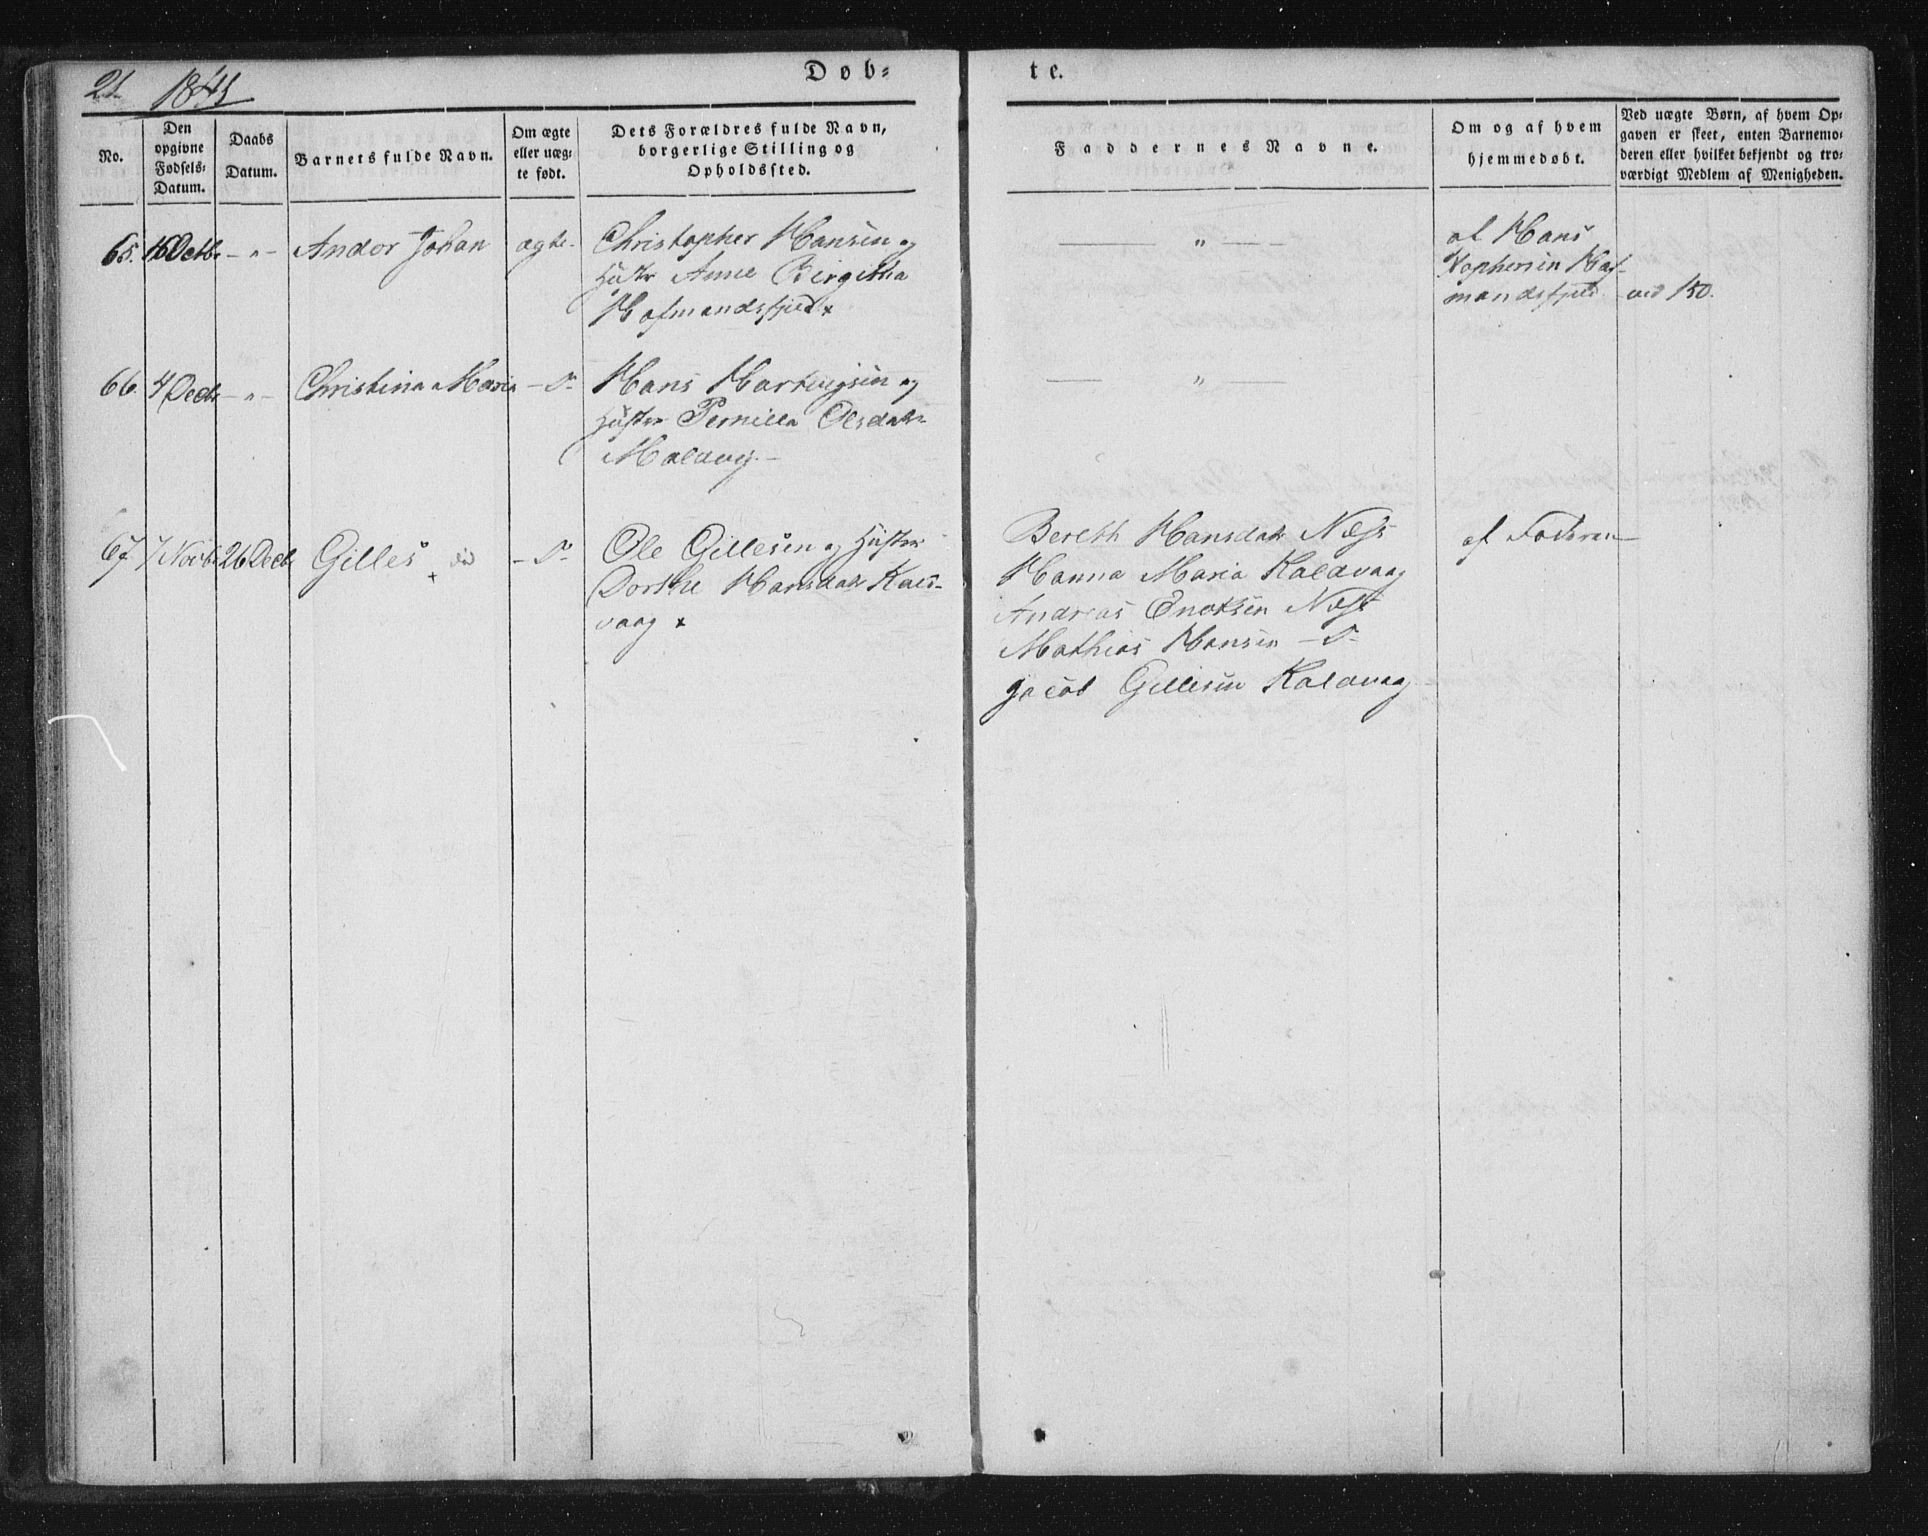 21 1845 Døb= te.
No.
Den opgivne Fødsels-Datum.
Daabs Datum.
Barnets fulde Navn.
Om ægte eller uæg-te født.
Dets Forældres fulde Navn, borgerlige Stilling og Opholdssted.
Faddernes Navne.
Om og af hvem hjemmedøbt.
Ved uægte Børn, af hvem Op-gaven er skeet, enten Barnemo-deren eller hvilket bekjendt og tro-værdigt Medlem af Menigheden.
65. 16 Octbr — " — Andor Johan ægte Christopher Hansen og — " — af Hans
Hustr Anne Birgitha Kophersen Hof-
Hofmandsfjeld x mandsfjeld vid 150.
66. 4 Decbr — " — Christina Maria — D° Hans Hartvigsen og — " —
Hustr Pernilla Olsdatr
67. 7 Novbr 26 Decbr Gilles + — D° Ole Gillesen og Hustr Bereth Hansdatr Næss af Faderen
Dorthe Hansdatr Kals- Hanna Maria Kaldvaag
vaag x Andreas Enoksen Næss
Mathias Hansen — D°
Jacob Gillesen Kaldvaag